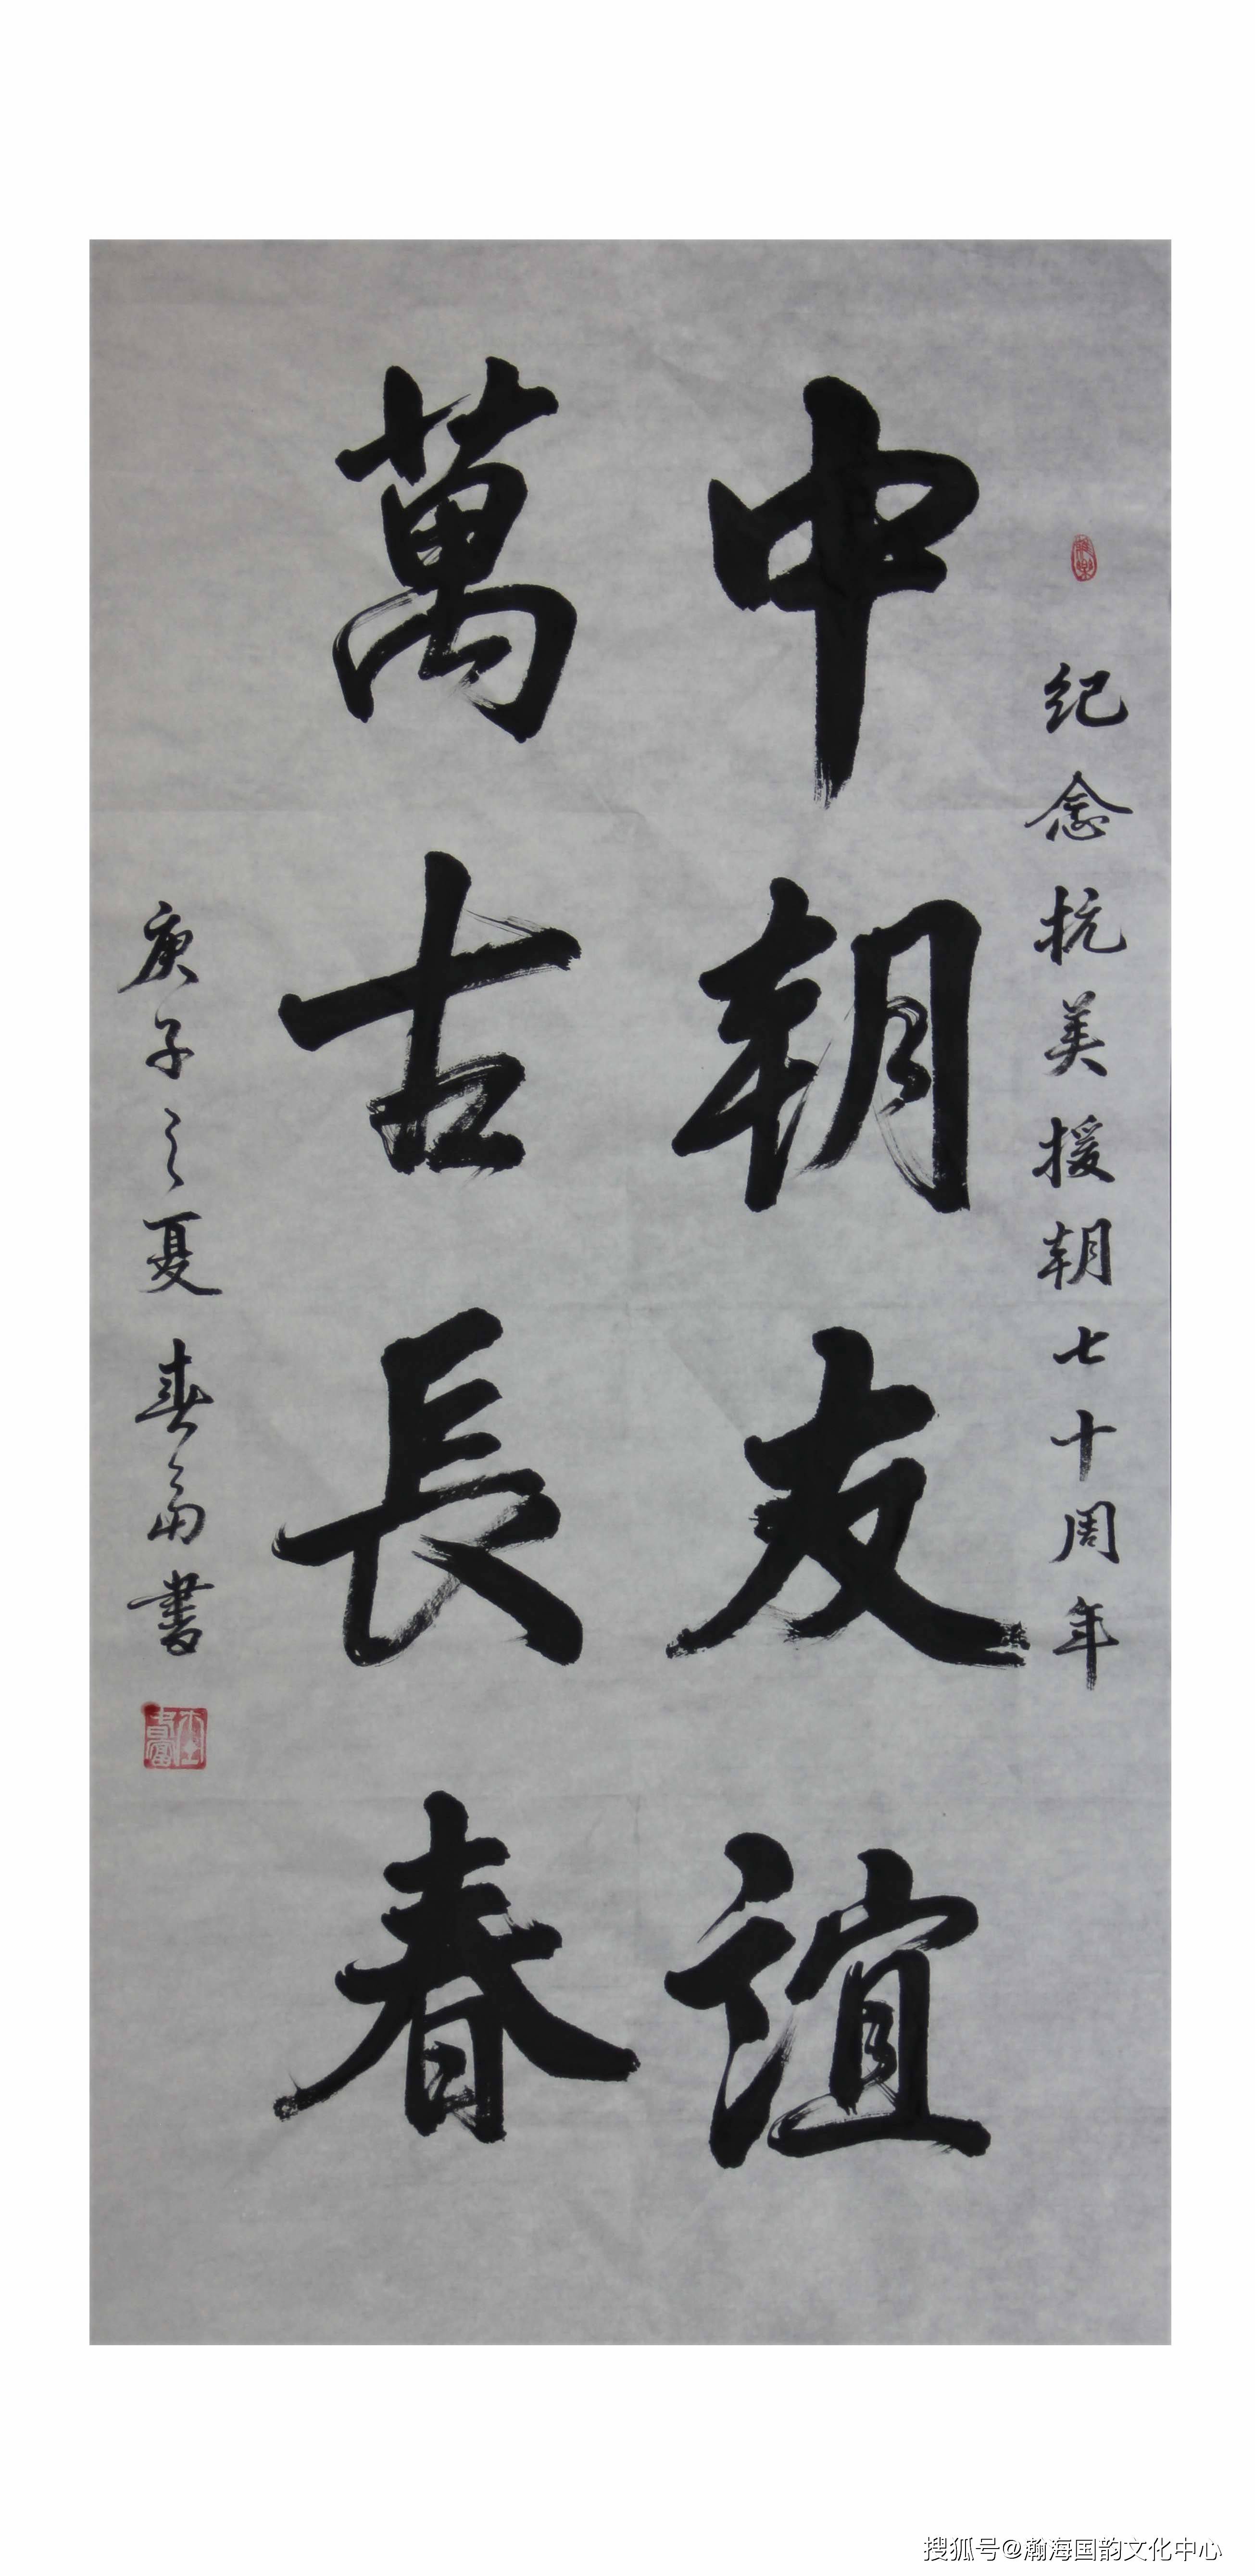 纪念抗美援朝七十周年
中朝友谊
萬古長春
庚子之夏 春富書
搜狐号@瀚海国韵文化中心